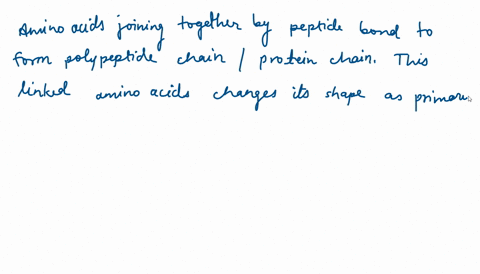 Amino acids joining together by peptide bond to
form polypeptide chain / protein chain. This
linked amino acids changes its shape as primar